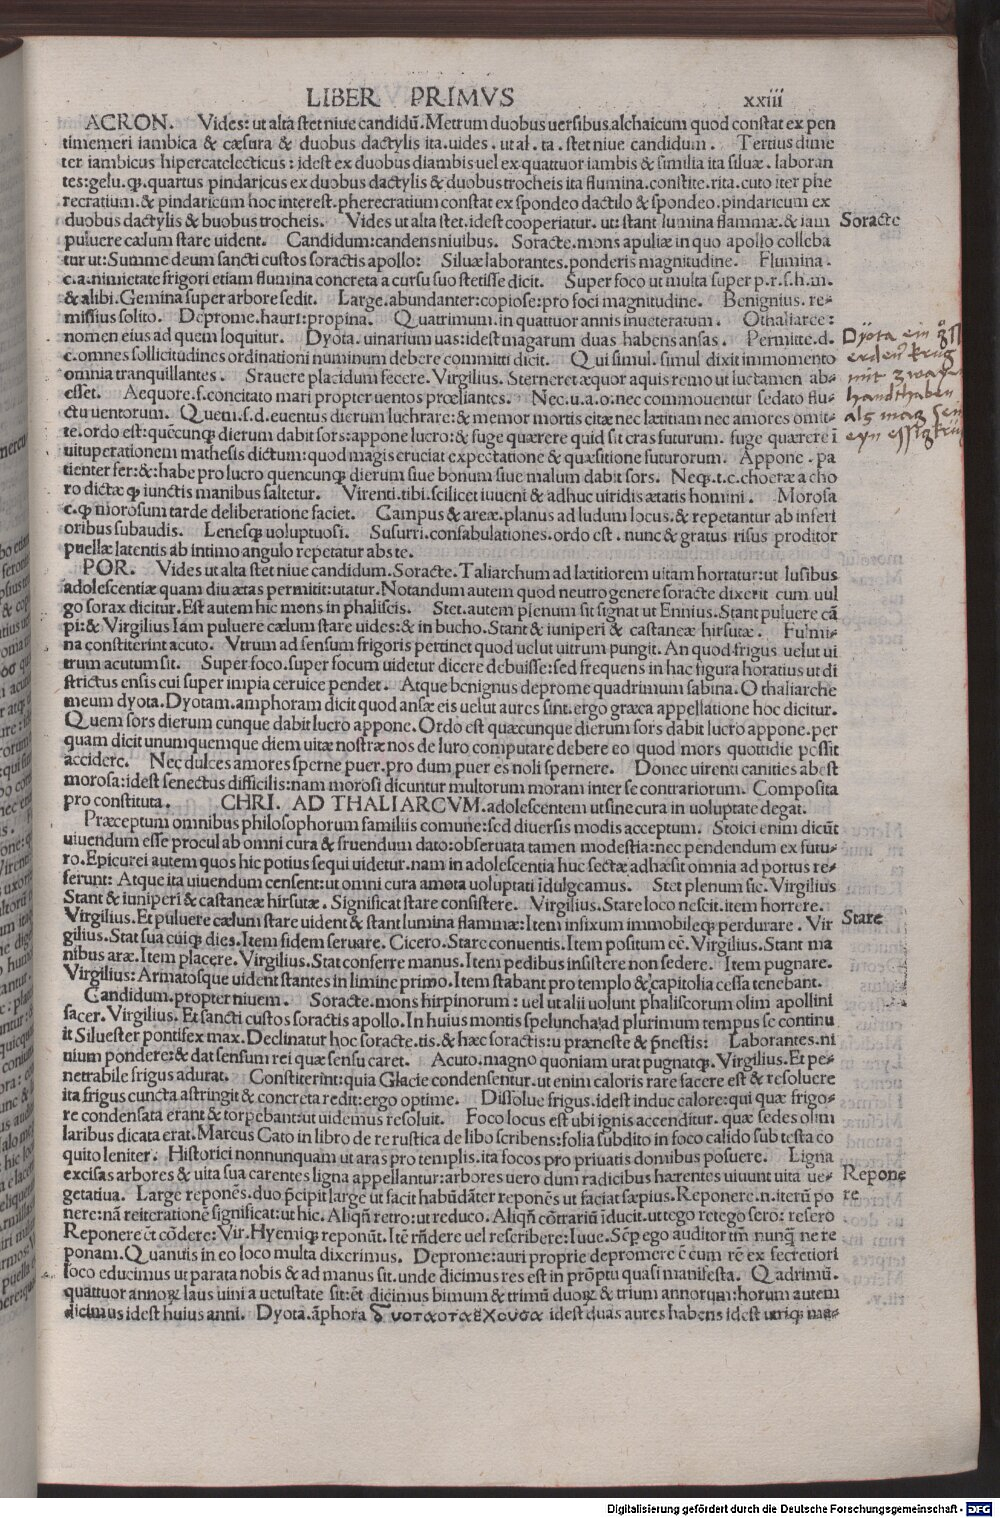 LIBER PRIMVS xxiii
ACRON. Vides: ut alta stet niue candidū. Metrum duobus uersibus alchaicum quod constat ex pen
timemeri iambica & cæsura & duobus dactylis ita. uides. ut al. ta. stet niue candidum. Tertius dime
ter iambicus hipercatelecticus: idest ex duobus diambis uel ex quattuor iambis & similia ita siluæ. laboran
tes: gelu. qꝫ. quartus pindaricus ex duobus dactylis & duobus trocheis ita flumina. constite. rita. cuto iter phe
recratium. & pindaricum hoc interest. pherecratium constat ex spondeo dactilo & spondeo. pindaricum ex
duobus dactylis & buobus trocheis. Vides ut alta stet. idest cooperiatur. ut: stant lumina flammæ. & iam
puluere cælum stare uident. Candidum: candens niuibus. Soracte. mons apuliæ in quo apollo colleba
tur ut: Summe deum sancti custos soractis apollo: Siluæ laborantes. ponderis magnitudine. Flumina.
c. a. nimietate frigori etiam flumina concreta a cursu suo stetisse dicit. Super foco ut multa super p. r. s. h. m.
& alibi. Gemina super arbore sedit. Large. abundanter: copiose: pro foci magnitudine. Benignius. re-
missius solito. Deprome. hauri: propina. Quatrimum. in quattuor annis inueteratum. Othaliarce:
nomen eius ad quem loquitur. Dyota. uinarium uas: idest magarum duas habens ansas. Permitte. d.
c. omnes sollicitudines ordinationi numinum debere committi dicit. Qui simul. simul dixit immomento
omnia tranquillantes. Srauere placidum fecere. Virgilius. Sterneret æquor aquis remo ut luctamen ab-
esset. Aequore. f. concitato mari propter uentos prœliantes. Nec. u. a. o. nec commouentur sedato flu-
ctu uentorum. Quem. s. d. euentus dierum luchrare: & memor mortis citæ nec lætitiam nec amores omit-
te. ordo est: quēcunqꝫ dierum dabit sors: appone lucro: & fuge quærere quid sit cras futurum. fuge quærere ī
uituperationem mathesis dictum: quod magis cruciat expectatione & quæsitione futurorum. Appone. pa
tienter fer: &: habe pro lucro quencunqꝫ dierum siue bonum siue malum dabit sors. Neqꝫ. t. c. choeræ a cho
ro dictæ qꝫ iunctis manibus saltetur. Virenti. tibi. scilicet iuueni & adhuc uiridis ætatis homini. Morosa
c. qꝫ morosum tarde deliberatione faciet. Campus & areæ. planus ad ludum locus. & repetantur ab inferi
oribus subaudis. Lenesqꝫ uoluptuosi. Susurri. confabulationes. ordo est. nunc & gratus risus proditor
puellæ latentis ab intimo angulo repetatur abs te.
POR. Vides ut alta stet niue candidum. Soracte. Taliarchum ad lætitiorem uitam hortatur: ut lusibus
adolescentiæ quam diu ætas permitit: utatur. Notandum autem quod neutro genere soracte dixerit cum uul
go sorax dicitur. Est autem hic mons in phaliscis. Stet. autem plenum sit signat ut Ennius. Stant puluere cā
pi: & Virgilius Iam puluere cælum stare uides: & in bucho. Stant & iuniperi & castaneæ hirsutæ. Fulmi-
na constiterint acuto. Vtrum ad sensum frigoris pertinet quod uelut uitrum pungit. An quod frigus uelut ui
trum acutum sit. Super foco. super focum uidetur dicere debuisse: sed frequens in hac figura horatius ut di
strictus ensis cui super impia ceruice pendet. Atque benignus deprome quadrimum sabina. O thaliarche
meum dyota. Dyotam. amphoram dicit quod ansæ eis uelut aures sint. ergo græca appellatione hoc dicitur.
Quem sors dierum cunque dabit lucro appone. Ordo est quæcunque dierum sors dabit lucro appone. per
quam dicit unumquemque diem uitæ nostræ nos de luro computare debere eo quod mors quottidie possit
accidere. Nec dulces amores sperne puer. pro dum puer es noli spernere. Donec uirenti canities abest
morosa: idest senectus difficilis: nam morosi dicuntur multorum moram inter se contrariorum. Composita
pro constituta. CHRI. AD THALIARCVM. adolescentem ut sine cura in uoluptate degat.
Præceptum omnibus philosophorum familiis comune: sed diuersis modis acceptum. Stoici enim dicūt
uiuendum esse procul ab omni cura & fruendum dato: obseruata tamen modestia: nec pendendum ex futu-
ro. Epicurei autem quos hic potius sequi uidetur. nam in adolescentia huc sectæ adhæsit omnia ad portus re-
ferunt: Atque ita uiuendum censent: ut omni cura amota uoluptati īdulgeamus. Stet plenum sit. Virgilius
Stant & iuniperi & castaneæ hirsutæ. Significat stare consistere. Virgilius. Stare loco nescit. item horrere.
Virgilius. Et puluere cælum stare uident & stant lumina flammæ: Item infixum immobileqꝫ perdurare. Vir
gilius. Stat sua cuiqꝫ dies. Item fidem seruare. Cicero. Stare conuentis. Item positum eē. Virgilius. Stant ma
nibus aræ. Item placere. Virgilius. Stat conferre manus. Item pedibus insistere non sedere. Item pugnare.
Virgilius: Armatosque uident stantes in limine primo. Item stabant pro templo & capitolia celsa tenebant.
Candidum. propter niuem. Soracte. mons hirpinorum: uel ut alii uolunt phaliscorum olim apollini
sacer. Virgilius. Et sancti custos soractis apollo. In huius montis spelunchā ad plurimum tempus se continu
it Siluester pontifex max. Declinatur hoc soracte. tis. & hæc soractis: u præneste & p̄nestis: Laborantes. ni
nium pondere: & dat sensum rei quæ sensu caret. Acuto. magno quoniam urat pugnatqꝫ. Virgilius. Et pe-
netrabile frigus adurat. Constiterint: quia Glacie condensentur. ut enim caloris rare facere est & resoluere
ita frigus cuncta astringit & concreta redit: ergo optime. Dissolue frigus. idest induc calore: qui quæ frigo-
re condensata erant & torpebant: ut uidemus resoluit. Foco locus est ubi ignis accenditur. quæ sedes olim
laribus dicata erat. Marcus Cato in libro de re rustica de libo scribens: folia subdito in foco calido sub testa co
quito leniter. Historici nonnunquam ut aras pro templis. ita focos pro priuatis domibus posuere. Ligna
excisas arbores & uita sua carentes ligna appellantur: arbores uero dum radicibus hærentes uiuunt uita ue-
getatiua. Large reponēs. duo p̄cipit large ut facit habūdāter reponēs ut faciat sæpius. Reponere. n. iterū po
nere: nā reiterationē significat: ut hic. Aliqñ retro: ut reduco. Aliqñ cōtrariū īducit. ut tego retego sero: resero
Reponere ēt cōdere: Vir. Hyemiqꝫ reponūt. Itē rñdere uel rescribere: Iuue. Sēp ego auditor tm̄ nunqꝫ ne re
ponam. Quantis in eo loco multa dixerimus. Deprome: auri proprie depromere ē cum rē ex secretiori
loco educimus ut parata nobis & ad manus sit. unde dicimus res est in prōptu quasi manifesta. Qadrimū.
quattuor annoꝝ laus uini a uetustate sit: ēt dicimus bimum & trimū duoꝝ & trium annorum: horum autem
dicimus idest huius anni. Dyota. āphora δυοταοταεχουσα idest duas aures habens idest utriqꝫ ma-
Soracte
Dyota ein
erden krug
mit zway
handthaben
als man sen
eyn essigkrü
Stare
Repone
re
Digitalisierung gefördert durch die Deutsche Forschungsgemeinschaft - DFG